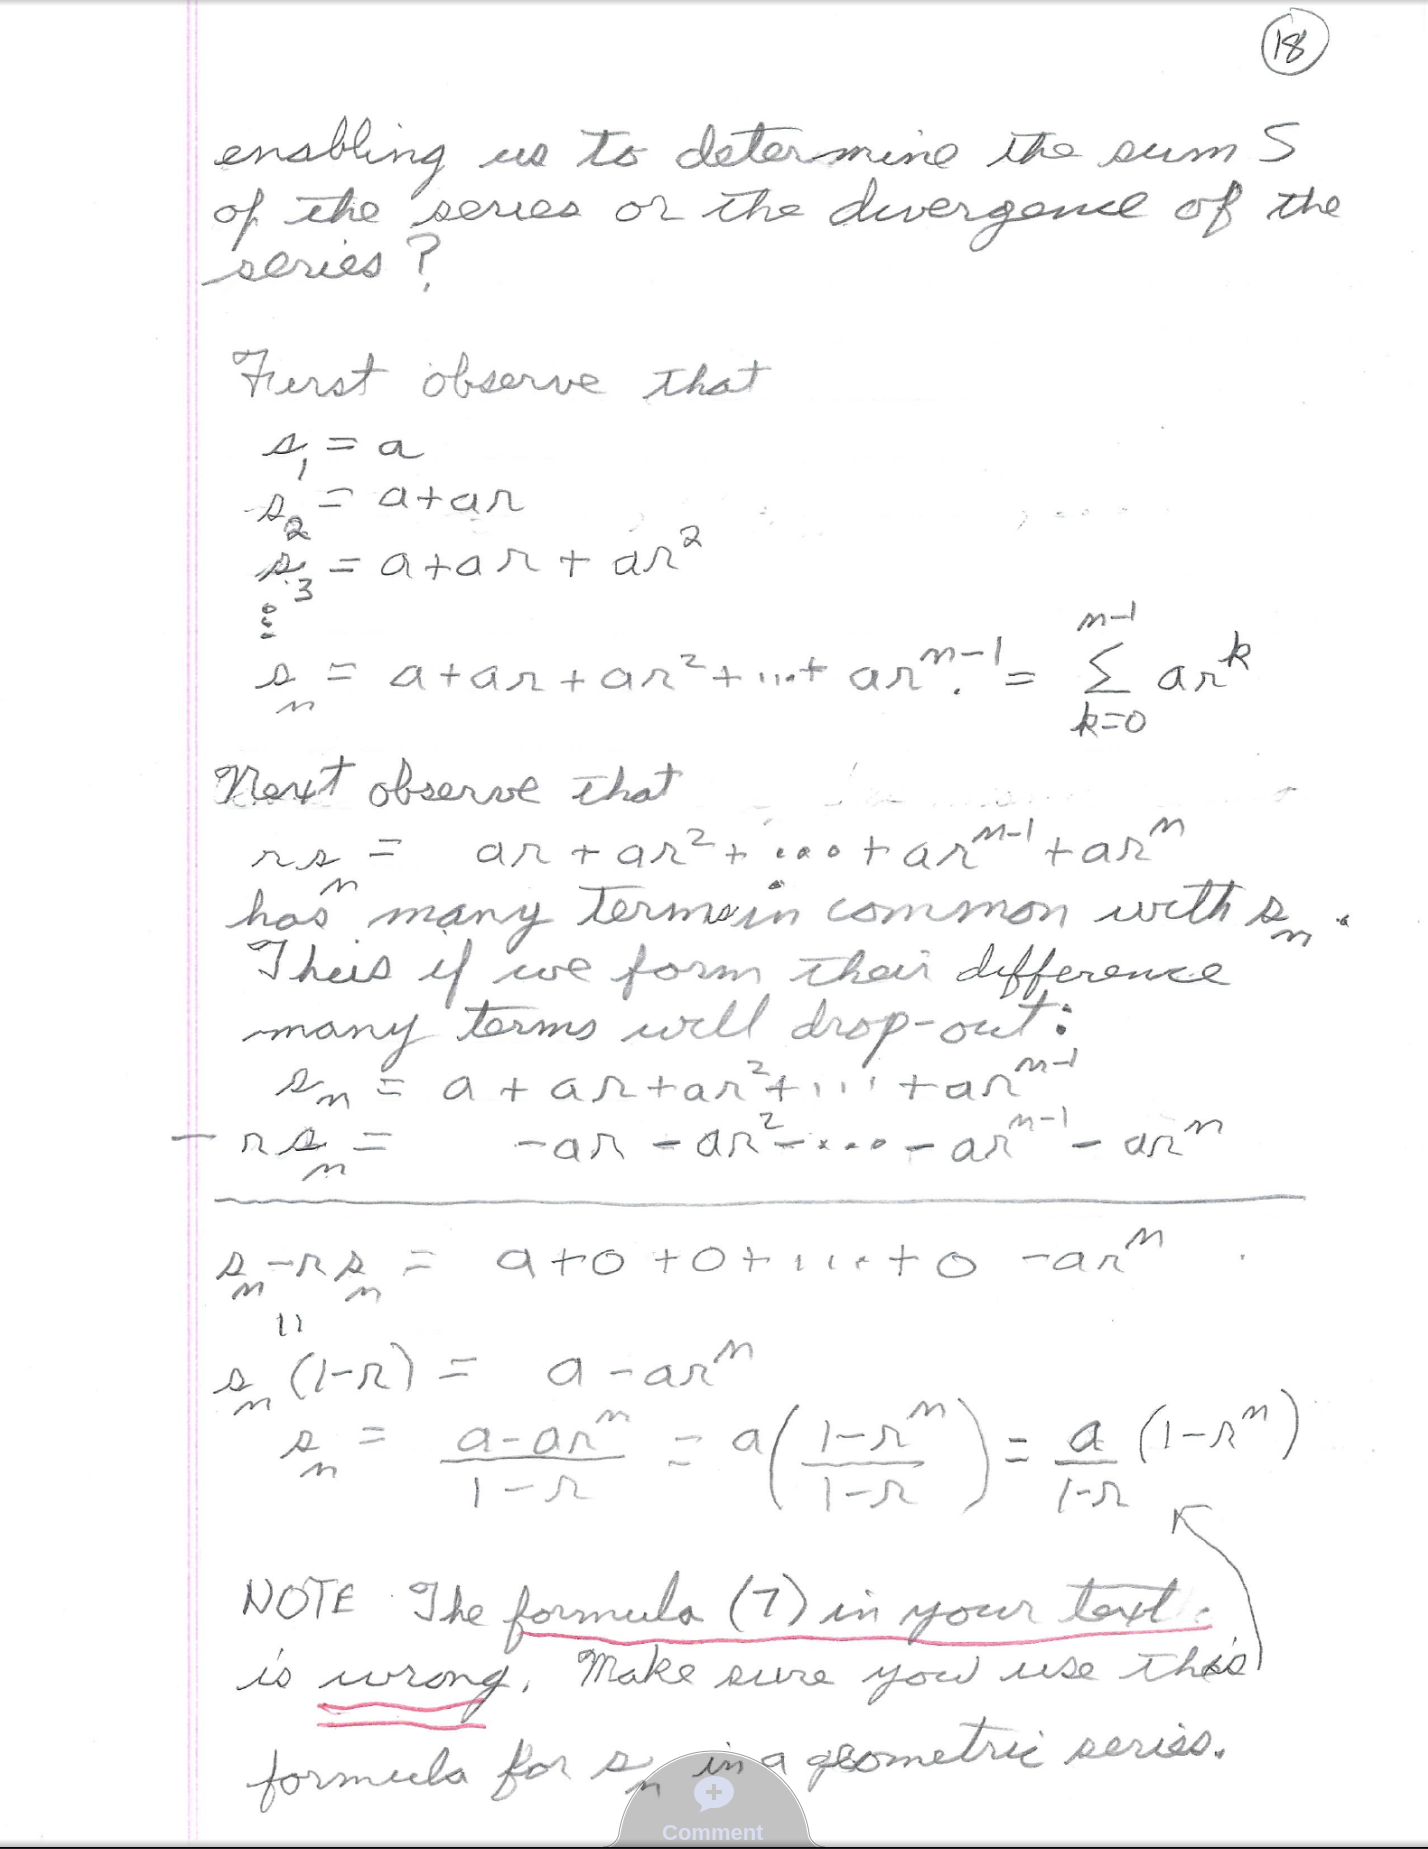 18
enabling us to determine the sum S
of the series or the divergence of the
series?
First observe that
s₁ = a
s₂ = a+ar
s₃ = a+ar + ar²
⋮
sₙ = a+ar+ar²+...+ arⁿ⁻¹ = ∑_{k=0}^{n-1} arᵏ
Next observe that
rsₙ = ar + ar² + ... + arⁿ⁻¹ + arⁿ
has many terms in common with sₙ.
Thus if we form their difference
many terms will drop-out:
sₙ = a + ar + ar² + ... + arⁿ⁻¹
- rsₙ = -ar - ar² - ... - arⁿ⁻¹ - arⁿ
sₙ-rsₙ = a+0+0+...+0 -arⁿ
||
sₙ(1-r) = a - arⁿ
sₙ = (a-arⁿ)/(1-r) = a((1-rⁿ)/(1-r)) = a/(1-r) (1-rⁿ)
NOTE The formula (7) in your text
is wrong. Make sure you use this
formula for sₙ in a geometric series.
Comment